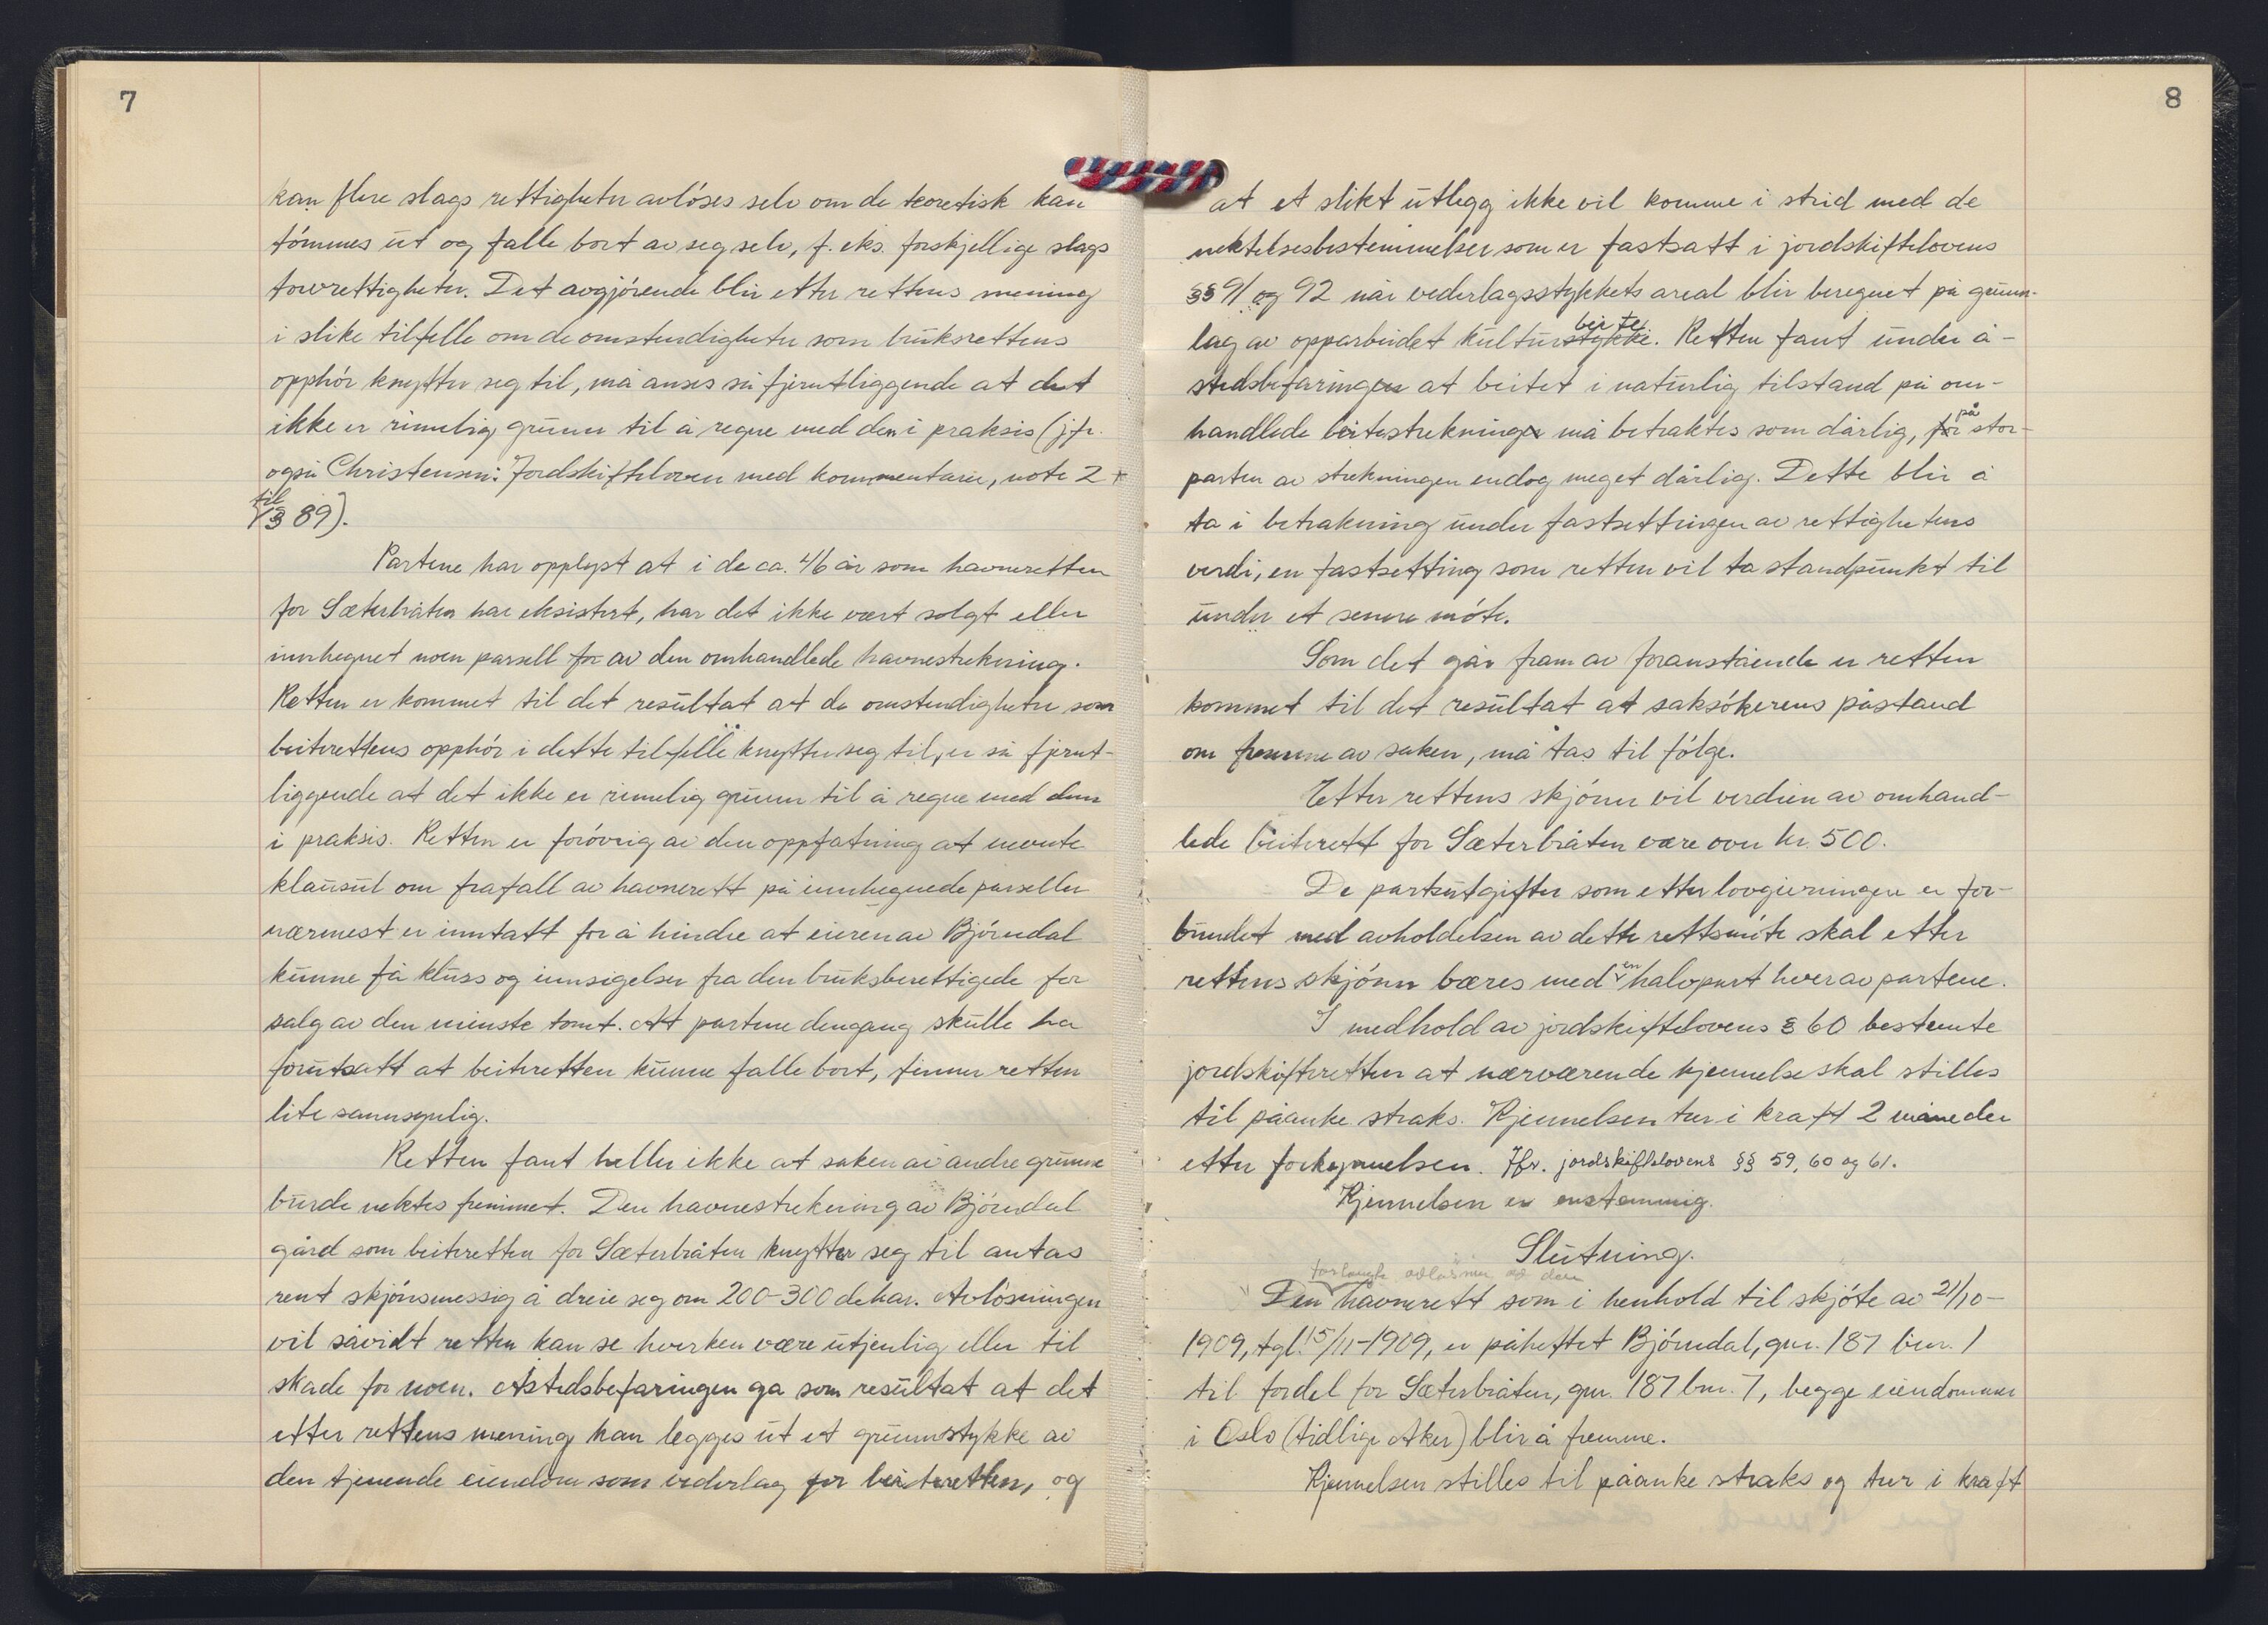 7
kan flere slags rettigheter avlöses selv om de teoretisk kan
tömmes ut og falle bort av seg selv, f. eks. forskjellige slags
torvrettigheter. Det avgjörende blir etter rettens mening
i slike tilfelle om de omstendigheter som bruksrettens
opphör knytter seg til, må anses så fjerntliggende at det
ikke er rimelig grunn til å regne med den i praksis (jfr.
også Christensen: Jordskifteloven med kommentarer, note 2
til
§ 89).
Partene har opplyst at i de ca. 46 år som havneretten
for Sæterbråten har eksistert, har det ikke vært solgt eller
innhegnet noen parsell for av den omhandlede havnestrekning.
Retten er kommet til det resultat at de omstendigheter som
beiterettens opphör i dette tilfelle knytter seg til, er så fjernt-
liggende at det ikke er rimelig grunn til å regne med dem
i praksis. Retten er forövrig av den oppfatning at nevnte
klausul om frafall av havnerett på innhegnede parseller
nærmest er inntatt for å hindre at eieren av Björndal
kunne få kluss og innsigelser fra den bruksberettigede for
salg av den minste tomt. At partene dengang skulle ha
forutsatt at beiteretten kunne falle bort, finner retten
lite sannsynlig.
Retten fant heller ikke at saken av andre grunne
burde nektes fremmet. Den havnestrekning av Björndal
gård som beiteretten for Sæterbråten knytter seg til antas
rent skjönsmessig å dreie seg om 200-300 dekar. Avlösningen
vil såvidt retten kan se hverken være utjenlig eller til
skade for noen. Åstedsbefaringen ga som resultat at det
etter rettens mening kan legges ut et grunnstykke av
den tjenende eiendom som vederlag for beiteretten, og
8
at et slikt utlegg ikke vil komme i strid med de
nektelsesbestemmelser som er fastsatt i jordskiftelovens
§§ 91 og 92 når vederlagsstykkets areal blir beregnet på grunn-
beite
lag av opparbeidet kulturstykke. Retten fant under å-
stedsbefaringen at beitet i naturlig tilstand på om-
på
handlede beitestrekninger må betraktes som dårlig, for stor-
parten av strekningen endog meget dårlig. Dette blir å
ta i betrakning under fastsettingen av rettighetens
verdi, en fastsetting som retten vil ta standpunkt til
under et senere möte.
Som det går fram av foranstående er retten
kommet til det resultat at saksökerens påstand
om fremme av saken, må tas til fölge.
Etter rettens skjönn vil verdien av omhand-
lede beiterett for Sæterbråten være over kr. 500.
De partsutgifter som etter lovgivningen er for-
bundet med avholdelsen av dette rettsmöte skal etter
en
rettens skjönn bæres med halvpart hver av partene.
I medhold av jordskiftelovens § 60 bestemte
jordskifteretten at nærværende kjennelse skal stilles
til påanke straks. Kjennelsen trer i kraft 2 måneder
etter forkynnelsen. Jfr. jordskiftelovens §§ 59, 60 og 61.
Kjennelsen er enstemmig.
Slutning.
forlangte avlösning av den
Den havnerett som i henhold til skjöte av 21/10-
1909, tgl. 15/11-1909, er påheftet Björndal, gnr. 187 bnr. 1
til fordel for Sæterbråten, gnr. 187 bnr. 7, begge eiendommer
i Oslo (tidlige Aker) blir å fremme.
Kjennelsen stilles til påanke straks og trer i kraft